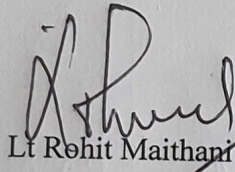 Lt Rohit Maithani